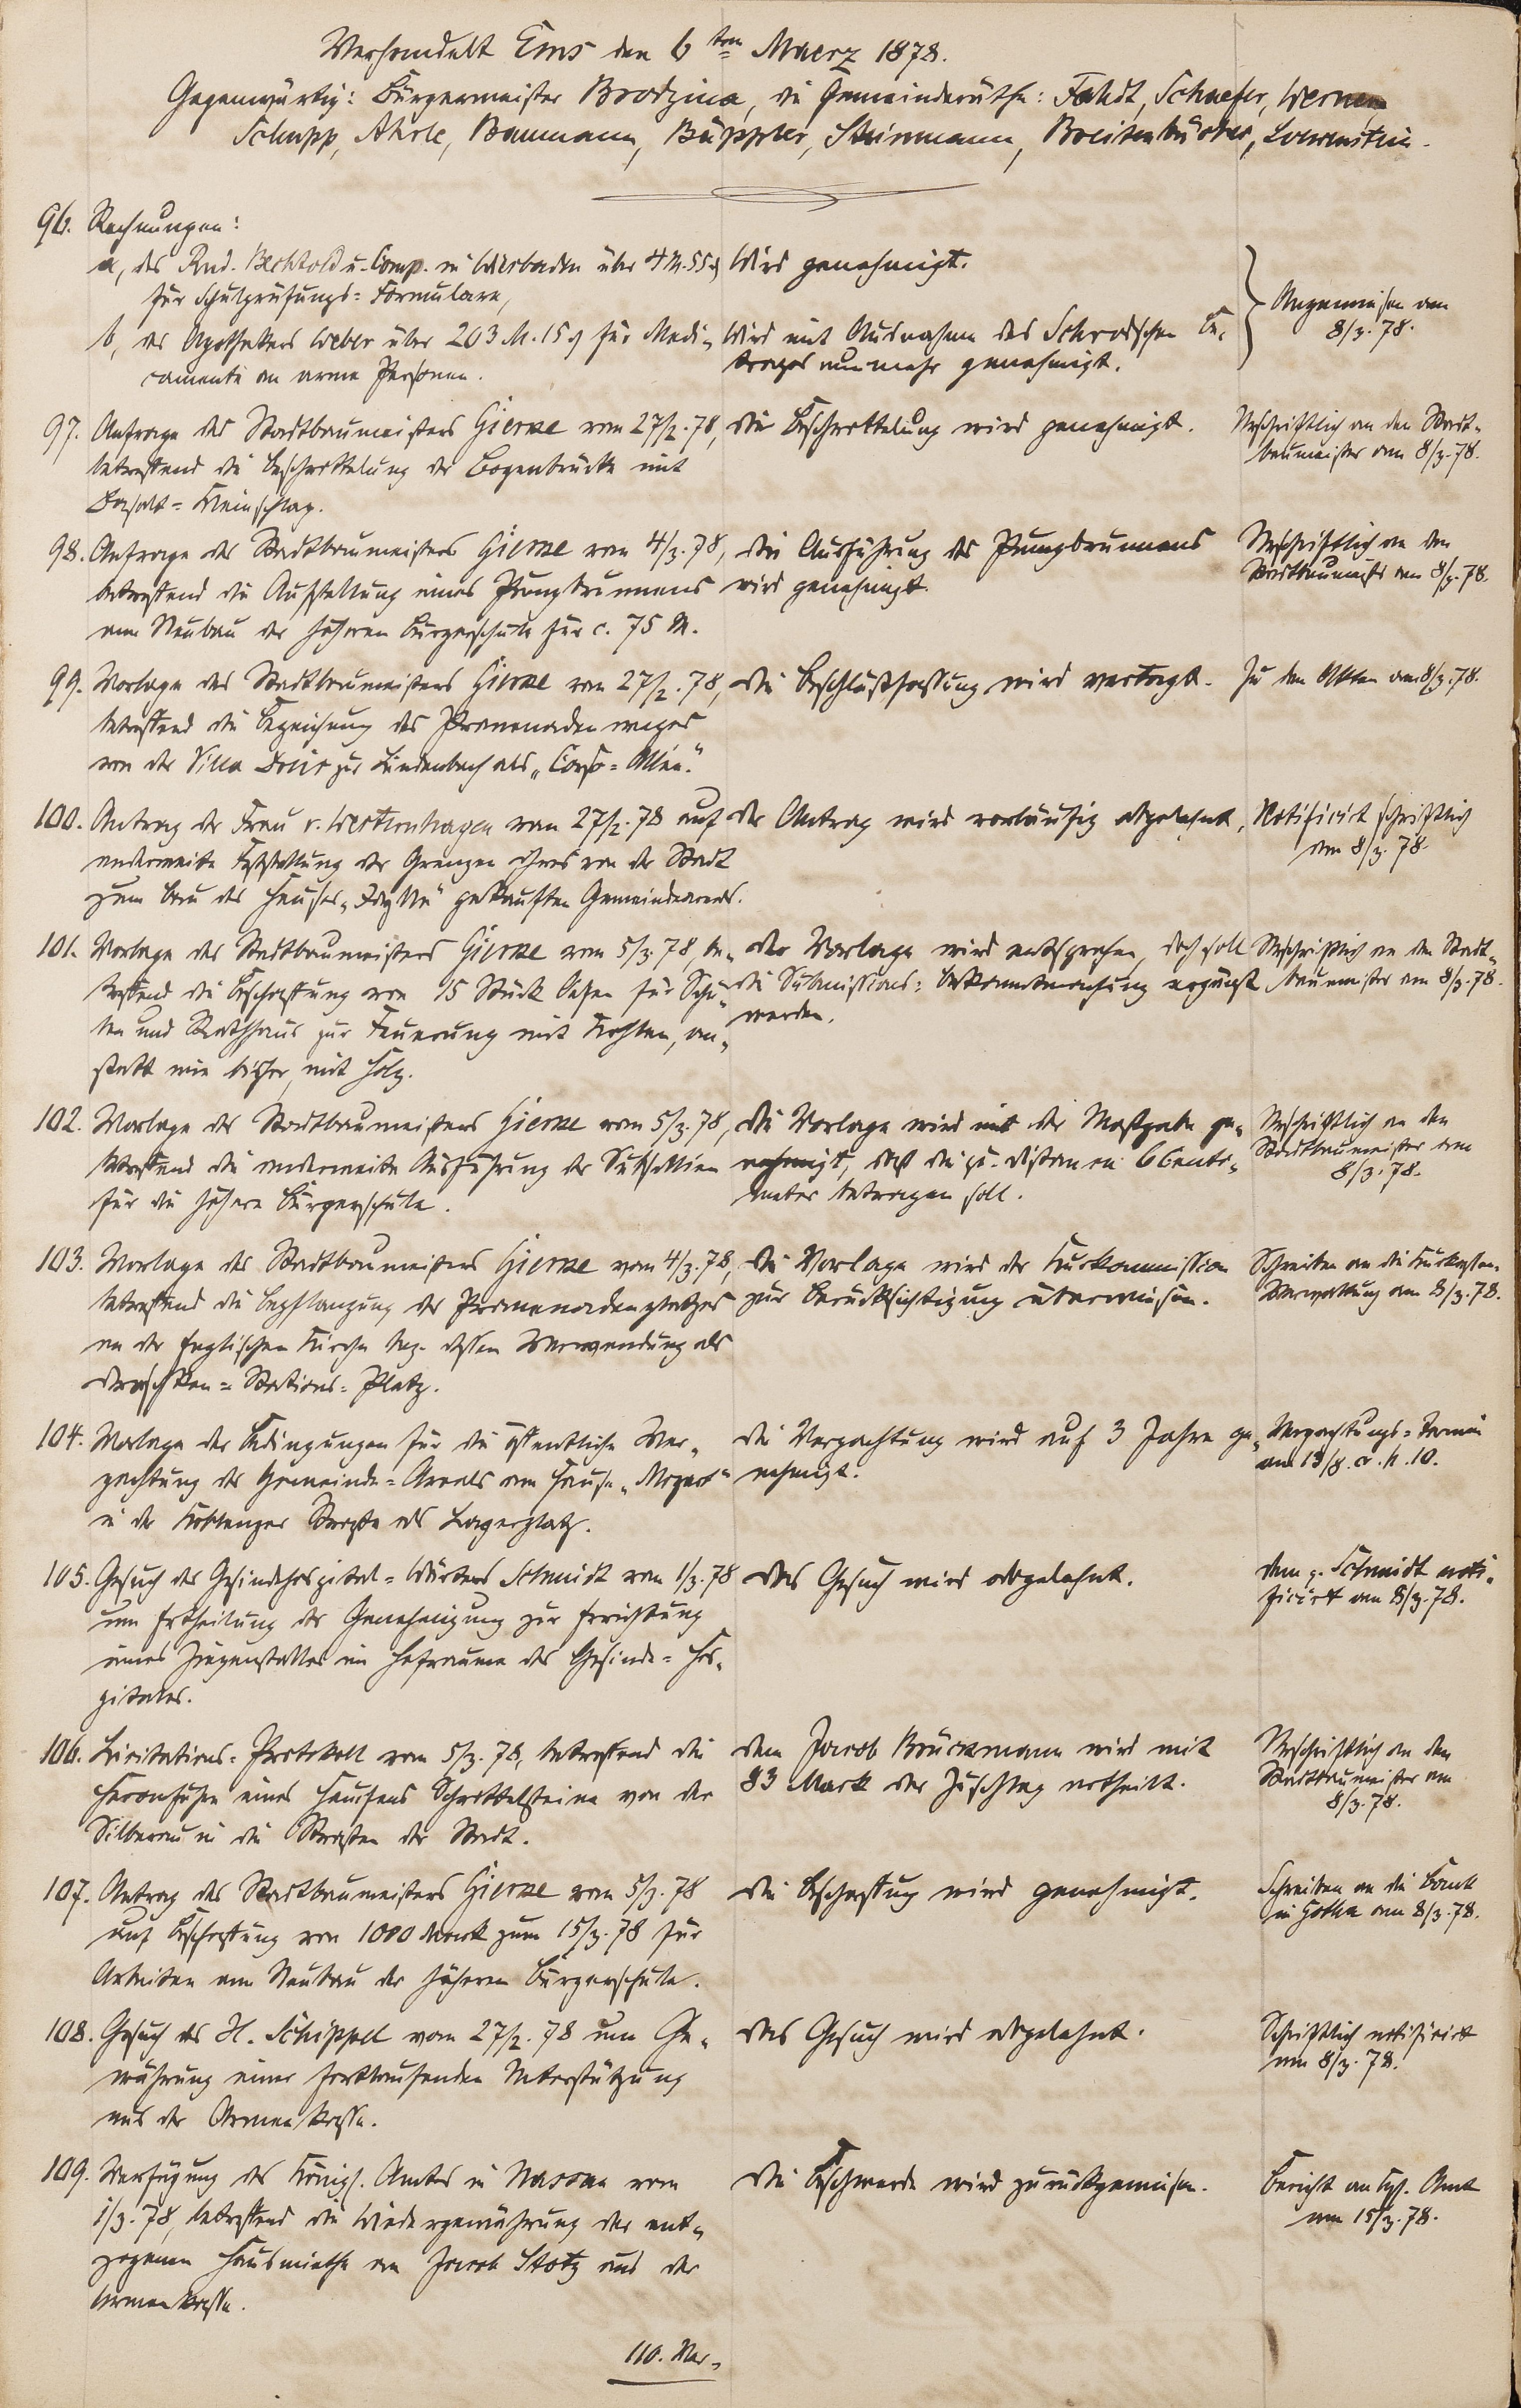 Verhandelt Ems den 6ten Maerz 1878.
Gegenwärtig: Bürgermeister Brodzina, die Gemeinderäthe: Fahdt, Schaefer, Werner,
Schupp, Ahrle, Baumann, Büppler, Steinmann, Breitenbücher, Loewenstein.
96. Rechnungen:
a, des Rud. Bechtold u. Comp. in Wiesbaden über 4 M. 55 ₰
für Schulprüfungs=Formulare,
Wird genehmigt.
b, des Apothekers Weber über 203 M. 15 ₰ für Medi-
camente an arme Personen.
Wird mit Ausnahme des Schrodschen Be-
trages nunmehr genehmigt.
Angewiesen am
8/3. 78.
97. Anfrage des Stadtbaumeisters Gierke vom 27/2. 78,
betreffend die Beschrottelung der Bogenbrücke mit
Basalt=Kleinschlag.
Die Beschrottelung wird genehmigt.
Urschriftlich an den Stadt-
baumeister am 8/3. 78.
98. Anfrage des Stadtbaumeisters Gierke vom 4/3. 78,
betreffend die Aufstellung eines Pumpbrunnens
am Neubau der höheren Bürgerschule für c. 75 M.
Die Ausführung des Pumpbrunnens
wird genehmigt.
Urschriftlich an den
Stadtbaumeister am 8/3. 78.
99. Vorlage des Stadtbaumeisters Gierke vom 27/2. 78,
betreffend die Bezeichnung des Promenadenweges
von der Villa zur Lindenbach als „Corso=Allée."
Die Beschlußfassung wird vertagt.
Zu den Akten am 8/3. 78.
100. Antrag der Frau v. Westernhagen vom 27/2. 78 auf
anderweite Feststellung der Grenzen ihres von der Stadt
zum Bau des Hauses „Idylle" gekauften Gemeindeareals.
Der Antrag wird vorläufig abgelehnt.
Notificirt schriftlich
am 8/3. 78.
101. Vorlage des Stadtbaumeisters Gierke vom 5/3. 78, be-
treffend die Beschaffung von 15 Stück Oefen für Schu-
len und Rathhaus zur Feuerung mit Kohlen, an-
statt wie bisher, mit Holz.
Der Vorlage wird entsprochen, doch soll
die Submissions=Bekanntmachung ergänzt
werden.
Urschriftlich an den Stadt-
baumeister am 8/3. 78.
102. Vorlage des Stadtbaumeisters Gierke vom 5/3. 78,
betreffend die anderweite Ausführung der Subsellien
für die höhere Bürgerschule.
Die Vorlage wird mit der Maßgabe ge-
nehmigt, daß die distance 6 Centi-
meter betragen soll.
Urschriftlich an den
Stadtbaumeister am
8/3. 78.
103. Vorlage des Stadtbaumeisters Gierke vom 4/3. 78,
betreffend die Bepflanzung des Promenadenplatzes
an der Englischen Kirche bez. dessen Verwendung als
Droschken=Stations=Platz.
Die Vorlage wird der Kurkommission
zur Berücksichtigung überwiesen.
Schreiben an die Kurkassen-
Verwaltung am 8/3. 78.
104. Vorlage der Bedingungen für die öffentliche Ver-
pachtung des Gemeinde=Areals am Hause „Mozart"
in der Koblenzer Straße als Lagerplatz.
Die Verpachtung wird auf 3 Jahre ge-
nehmigt.
Verpachtungs=Termin
am 13/3. c. h. 10.
105. Gesuch des Gesindehospital=Wärters Schmidt vom 1/3. 78
um Ertheilung der Genehmigung zur Errichtung
eines Ziegenstalles im Hofraume des Gesinde=Hos-
pitales.
Das Gesuch wird abgelehnt.
Dem p. Schmidt noti-
ficirt am 8/3. 78.
106. Licitations=Protokoll vom 5/3. 78, betreffend die
Heranfuhr eines Haufens Schrottelsteine von der
Silberau in die Straßen der Stadt.
Dem Jacob Brückmann wird mit
83 Mark der Zuschlag ertheilt.
Urschriftlich an den
Stadtbaumeister am
8/3. 78.
107. Antrag des Stadtbaumeisters Gierke vom 5/3. 78
auf Beschaffung von 1000 Mark zum 15/3. 78 für
Arbeiten am Neubau der höheren Bürgerschule.
Die Beschaffung wird genehmigt.
Schreiben an die Bank
in Gotha am 8/3. 78.
108. Gesuch des H. Schippel vom 27/2. 78 um Ge-
währung einer fortlaufenden Unterstützung
aus der Armenkasse.
Das Gesuch wird abgelehnt.
Schriftlich notificirt
am 8/3. 78.
109. Verfügung des Königl. Amtes in Nassau vom
1/3. 78, betreffend die Wiedergewährung der ent-
zogenen Hausmiethe an Jacob Stotz aus der
Armenkasse.
Die Beschwerde wird zurückgewiesen.
Bericht an Kgl. Amt
am 15/3. 78.
110. Ver-